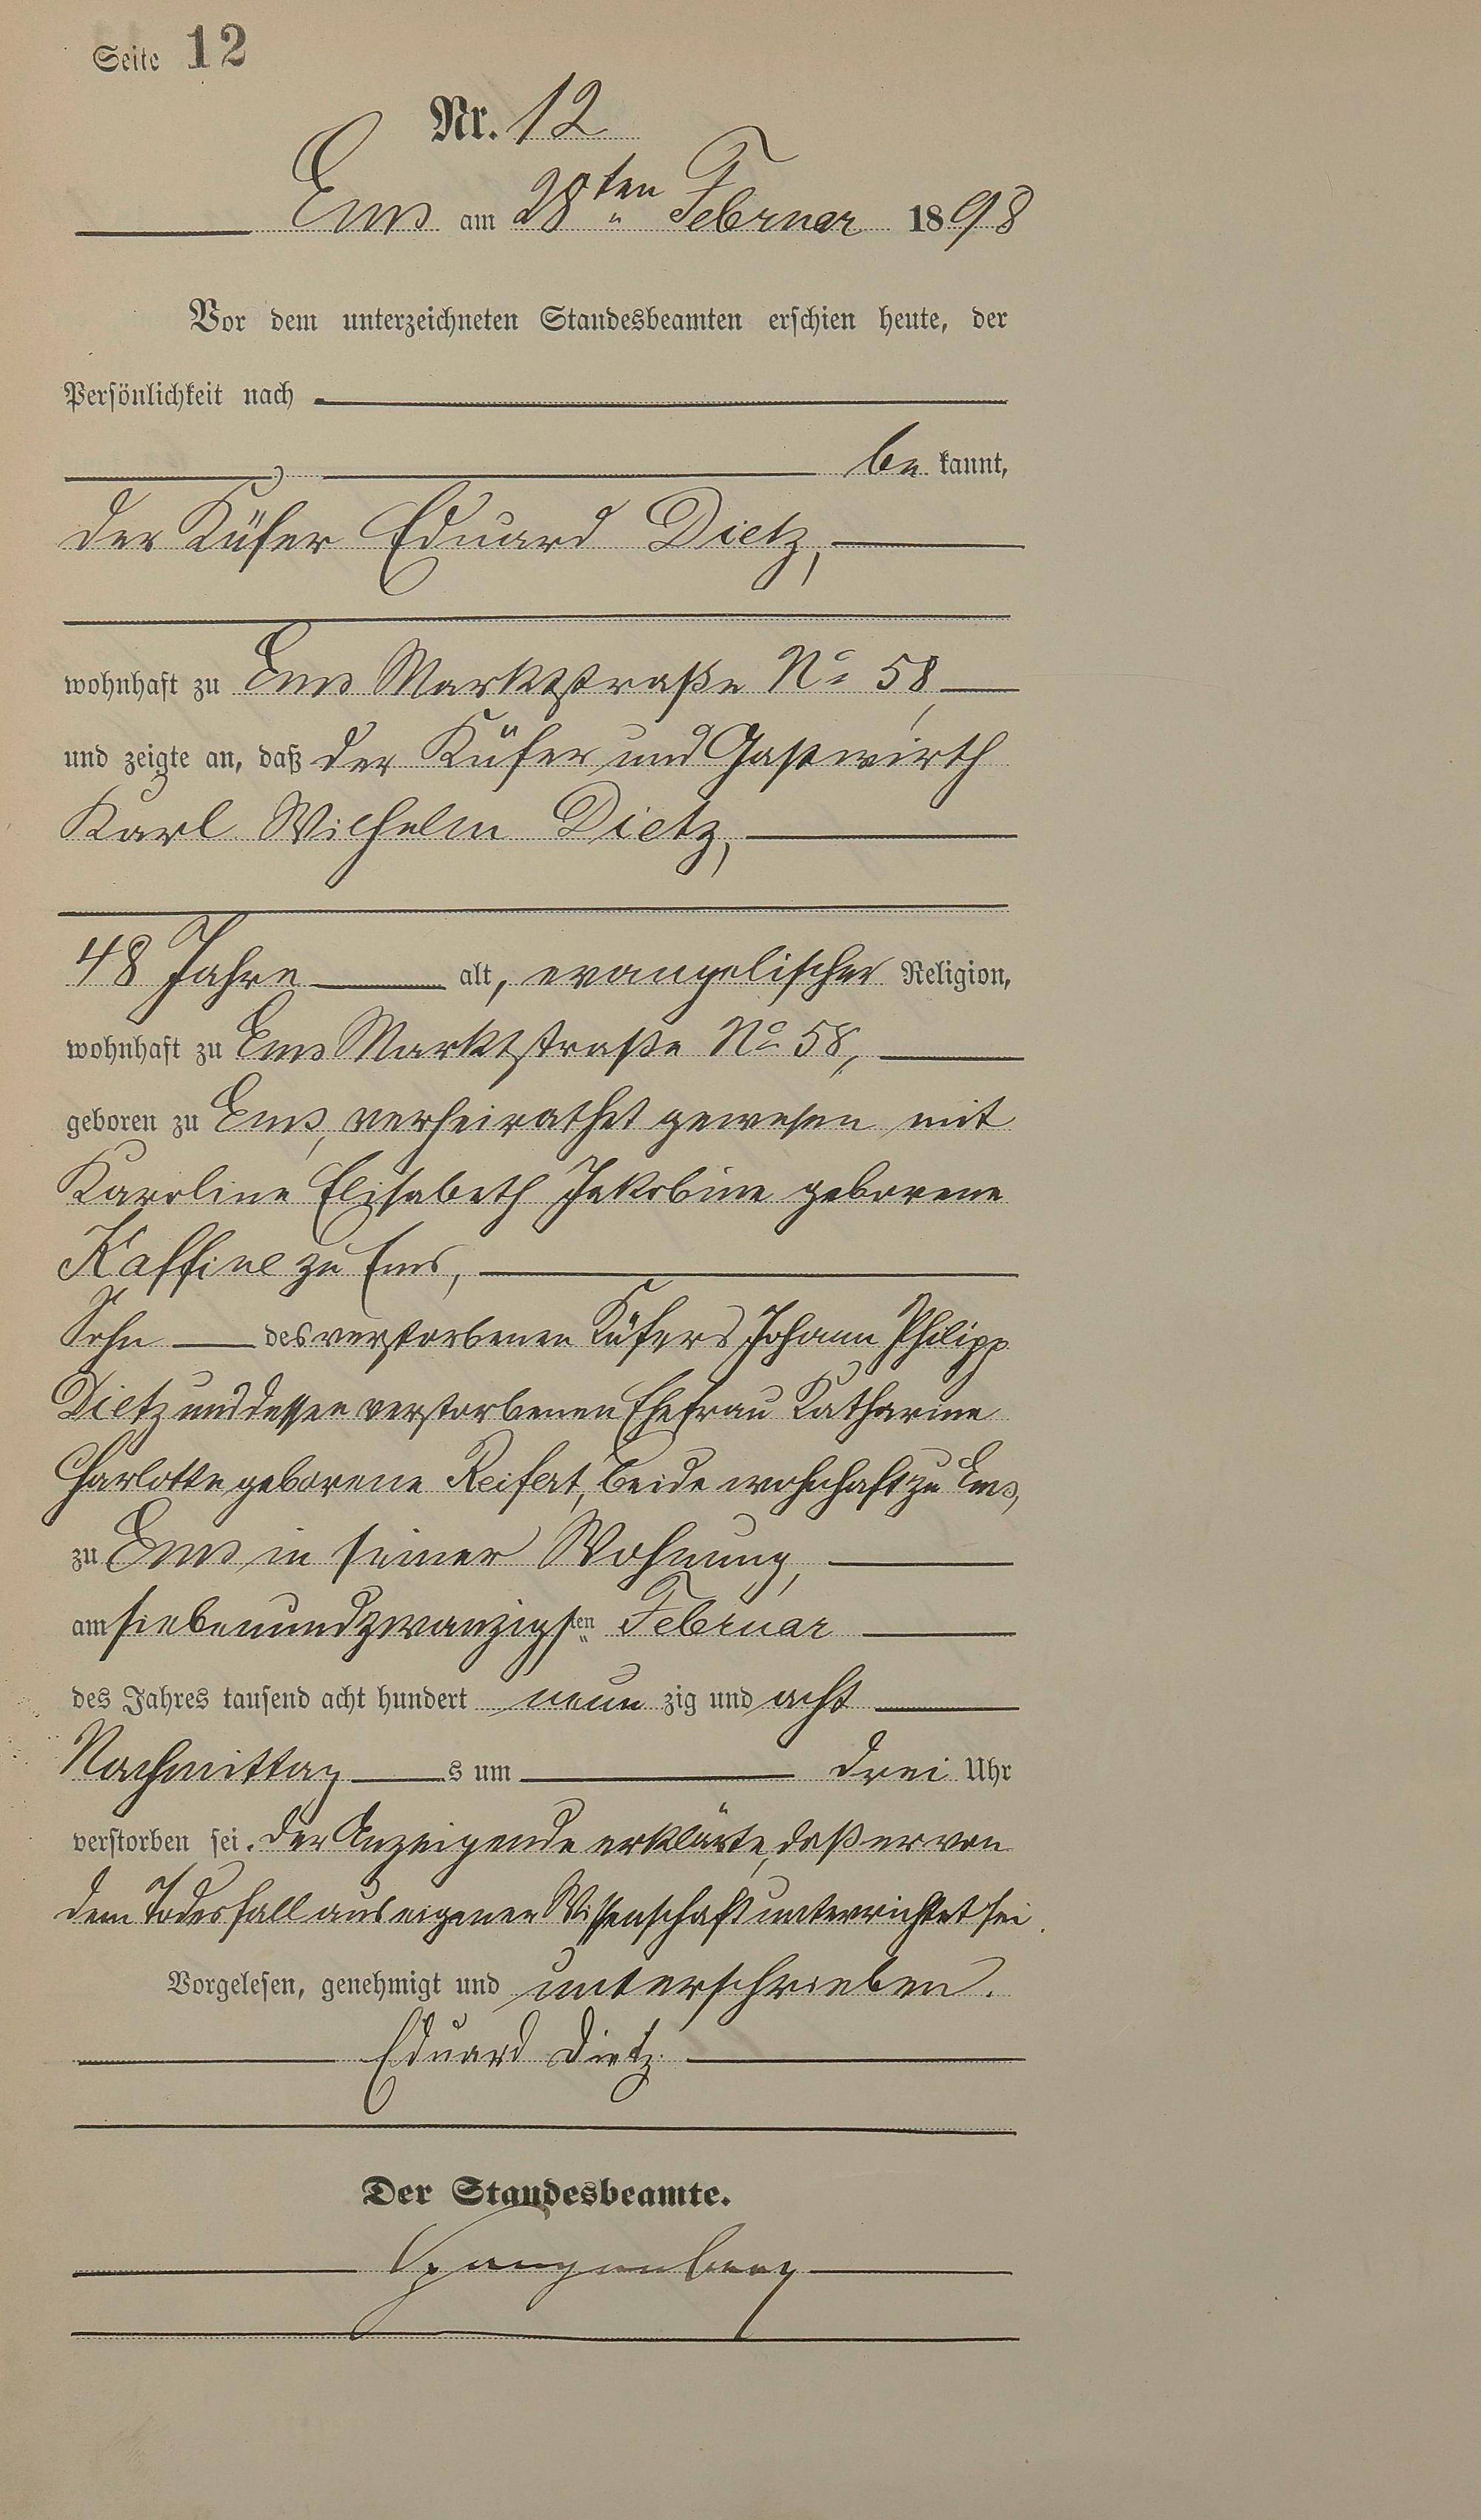 Seite 12
Nr. 12
Ems am 28ten Februar 1898
Vor dem unterzeichneten Standesbeamten erschien heute, der
Persönlichkeit nach
be kannt,
der Küfer Eduard Dietz,
wohnhaft zu Ems Marktstraße No 58,
und zeigte an, daß der Küfer und Gastwirth
Karl Wilhelm Dietz,
48 Jahre alt, evangelischer Religion,
wohnhaft zu Ems Marktstraße No 58,
geboren zu Ems, verheirathet gewesen mit
Karoline Elisabeth Jakobine geborene
Kaffine zu Ems,
Sohn des verstorbenen Küfers Johann Philipp
Dietz und dessen verstorbenen Ehefrau Katharine
Charlotte geborene Reifert, beide wohnhaft zu Ems,
zu Ems in seiner Wohnung,
am siebenundzwanzigsten Februar
des Jahres tausend acht hundert neun zig und acht
Nachmittag s um drei Uhr
verstorben sei. Der Anzeigende erklärte, daß er von
dem Todesfall aus eigener Wissenschaft unterrichtet sei.
Vorgelesen, genehmigt und unterschrieben.
Eduard Dietz.
Der Standesbeamte.
Spangenberg